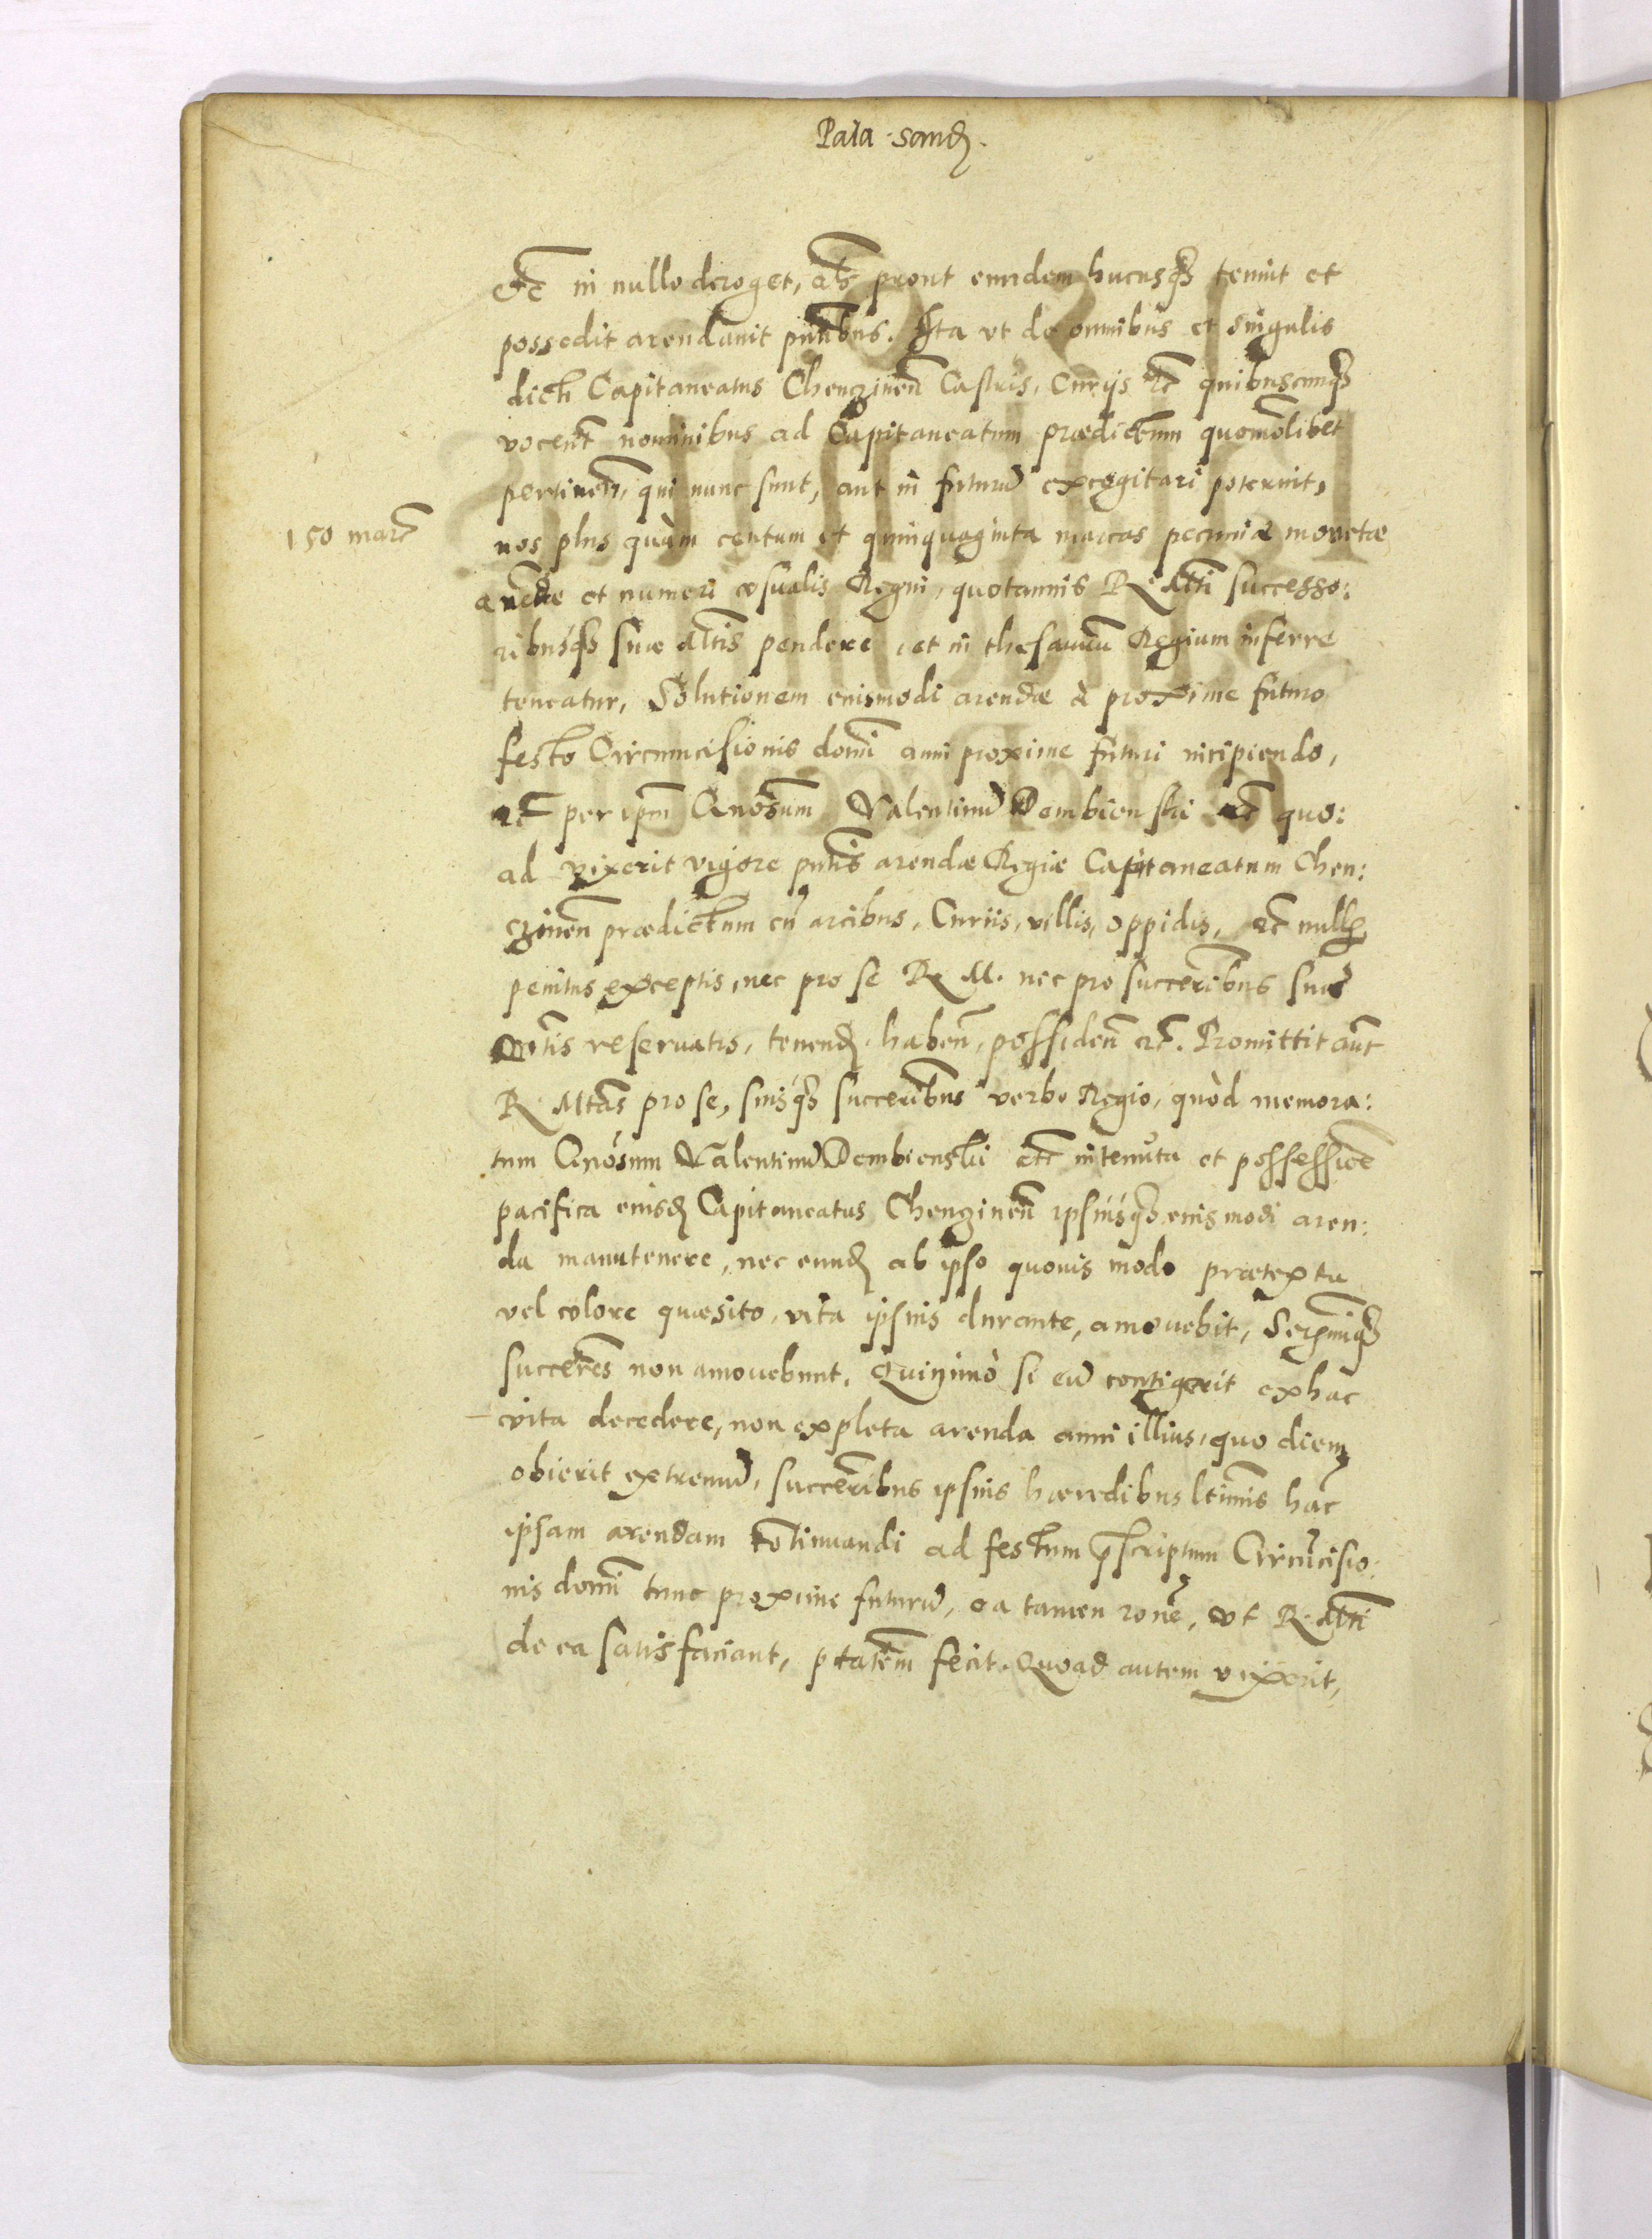 Pala · sand.
etc in nullo deroget, als prout eundem hucusq3 tenuit et
possedit arendauit pntibus. Ita vt de omnibus et singulis
dicti Capitaneatus Chenczinen Castris, Curijs etc quibuscunq3
vocent nominibus ad Capitaneatum prædictum quomolibet
pertinen, qui nunc sunt, aut in futurū excogitari poterunt,
150 marc
nos plus quàm centum et quinquaginta marcas pecuniæ monetæ
et numeri cōsualis Regni, quotannis R. Mtti successo:
ribusq3 suæ Mtis pendere, et in thesaurum Regium inferre
teneatur, Solutionem eiusmodi arendæ à proxime futuro
festo Circumcisionis domi anni proxime futuri incipiendo,
etc per ipm Gnosum Valentinū Dembienski etc quo:
ad vixerit vigore pntis arendæ Regiæ Capitaneatum Chen:
czinen prædictum cū arcibus, Curiis, villis, oppidis, etc null
penitus exceptis, nec pro se R M. nec pro successribus suis
reseruatis, tenend. haben, possiden etc. Promittit aut
R. Mtas pro se, suisq3 succeribus verbo Regio, quòd memora:
tum Gnosum Valentinū Dembienski etc in tenuta et possessioē
pacifica eiusd Capitaneatus Chenczinen ipsiusq3 eiusmodi aren:
da manutenere, nec eund ab ipso quouis modo prætextu
vel colore quæsito, vita ipsius durante, amouebit, Sermiq3
succeres non amouebunt. Quinimò si eū contigerit ex hac
vita decedere, non expleta arenda anni illius, quo diem
obierit extremū, succeribus ipsius hæredibus ltimis hāc
ipsam arendam cōtinuandi ad festum pscriptum Circūcisio:
nis domi tunc proxime futurū, ea tamen rone, vt R. Mtti
de ea satisfaciant, ptatem fecit. Quoad autem vixerit,